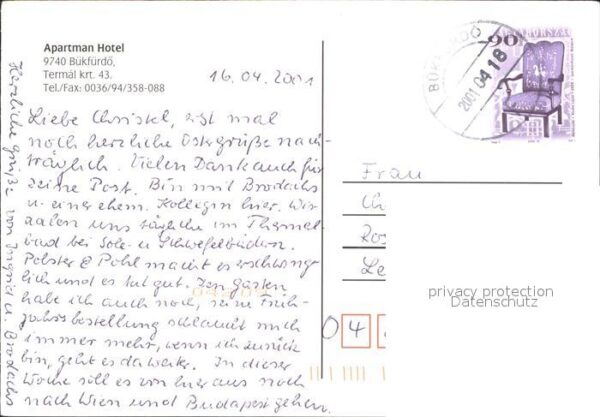 Apartman Hotel
9740 Bükfürdő,
Termál krt. 43.
Tel./Fax: 0036/94/358-088
16.04.2001
Liebe Christel, erst mal
noch herzliche Ostergrüße nach-
träglich. Vielen Dank auch für
Deine Post. Bin mit Brodachs
u. einer ehem. Kollegin hier. Wir
aalen uns täglich im Thermal-
bad bei Sole- u. Schwefelbädern.
Polster & Pohl macht es erschwing-
lich und es tut gut. Den Garten
habe ich auch noch, seine Früh-
jahrsbestellung schlaucht mich
immer mehr, wenn ich zurück
bin, geht es da weiter. In dieser
Woche soll es von hier aus noch
nach Wien und Budapest gehen.
Herzliche Grüße von Ingrid u. Brodachs
BÜKFÜRDŐ
2001 04 18
90
MAGYARORSZÁG
Frau
Ch
Ros
Le
04
privacy protection
Datenschutz